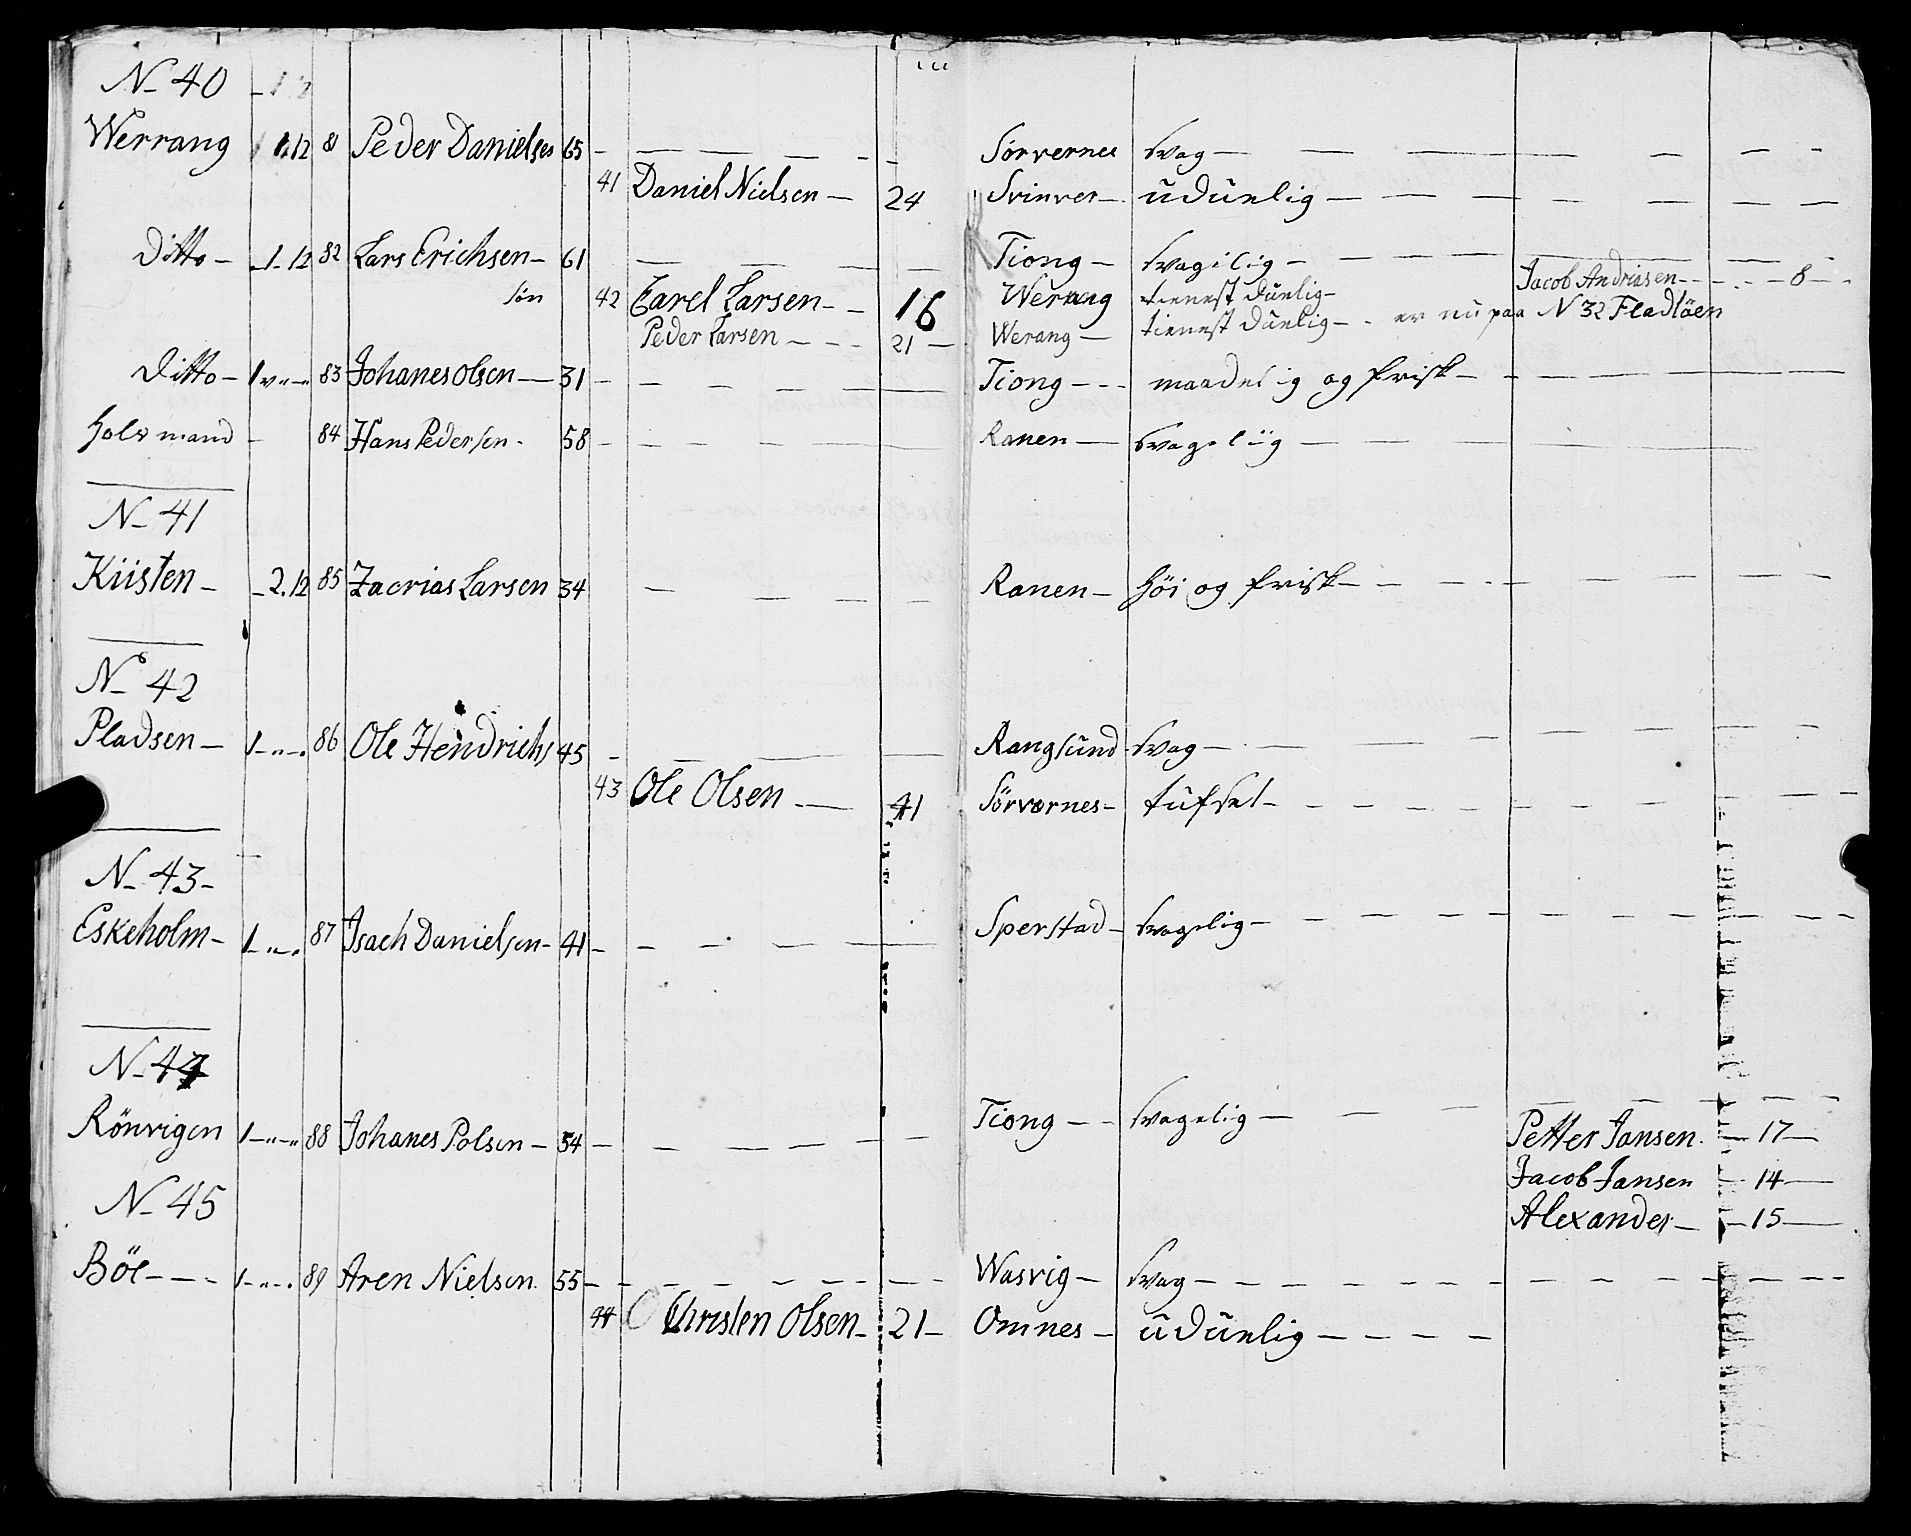 N 40 - 1 12
Werrang 1 1.12 81 Peder Danielsen 65 - Sørvernes svag -
41 Daniel Nielsen - 24 Svinver - uduelig -
Ditto - 1.12 82 Lars Erichsen - 61 Tiong - svagelig -
søn 42 Carel Larsen - 16 Werang tienest duelig - Jacob Andriasen - 8 -
Peder Larsen - 21 - Werang - tienest duelig - er nu paa N 32 Fladtöen
Ditto - 83 Johanes Olsen - 31 - Tiong - maadelig og frisk -
mand - 84 Hans Pedersen - 58 - Ranen - svageliig -
N 41
Kiisten - 2.12 85 Zacrias Larsen 34 - Ranen - höi og frisk -
N 42
Pladsen - 1 - " - 86 Ole Hendrichs 45 - Rangsund svag -
43 Ole Olsen - 41 Sörvernes -
N 43 -
Eskeholm - 1 - " - 87 Isach Danielsen - 41 - Sperstad - svagelig -
N 44
Rönvigen 1 - " - " 88 Johanes Polsen - 54 - Tiong - svagelig - Petter Jansen - 17 -
Jacob Jansen 14 -
N 45 Alexander - 15 -
Böe - 1 - " - 89 Aren Nielsen 55 - Wasvig - svag -
44 Christen Olsen - 21 - Omnes - uduelig -